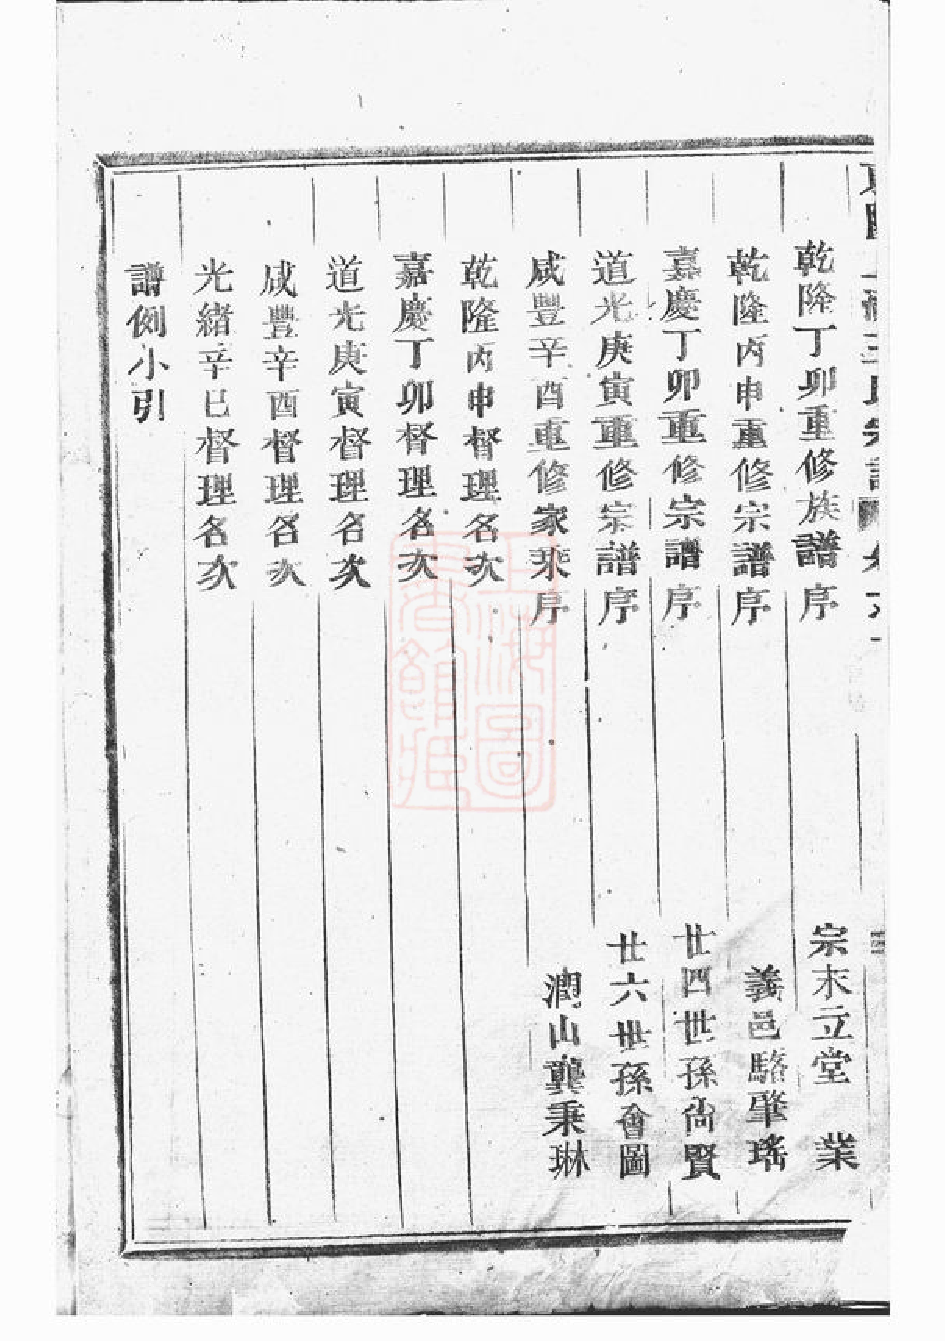 乾隆丁卯重修族譜序 宗末立堂 業
乾隆丙申重修宗譜序 義邑駱肇瑤
嘉慶丁卯重修宗譜序 廿四世孫尙賢
道光庚寅重修宗譜序 廿六世孫會圖
咸豐辛酉重修家乘序 潤山龔秉琳
乾隆丙申督理名次
嘉慶丁卯督理名次
道光庚寅督理名次
咸豐辛酉督理名次
光緒辛巳督理名次
譜例小引